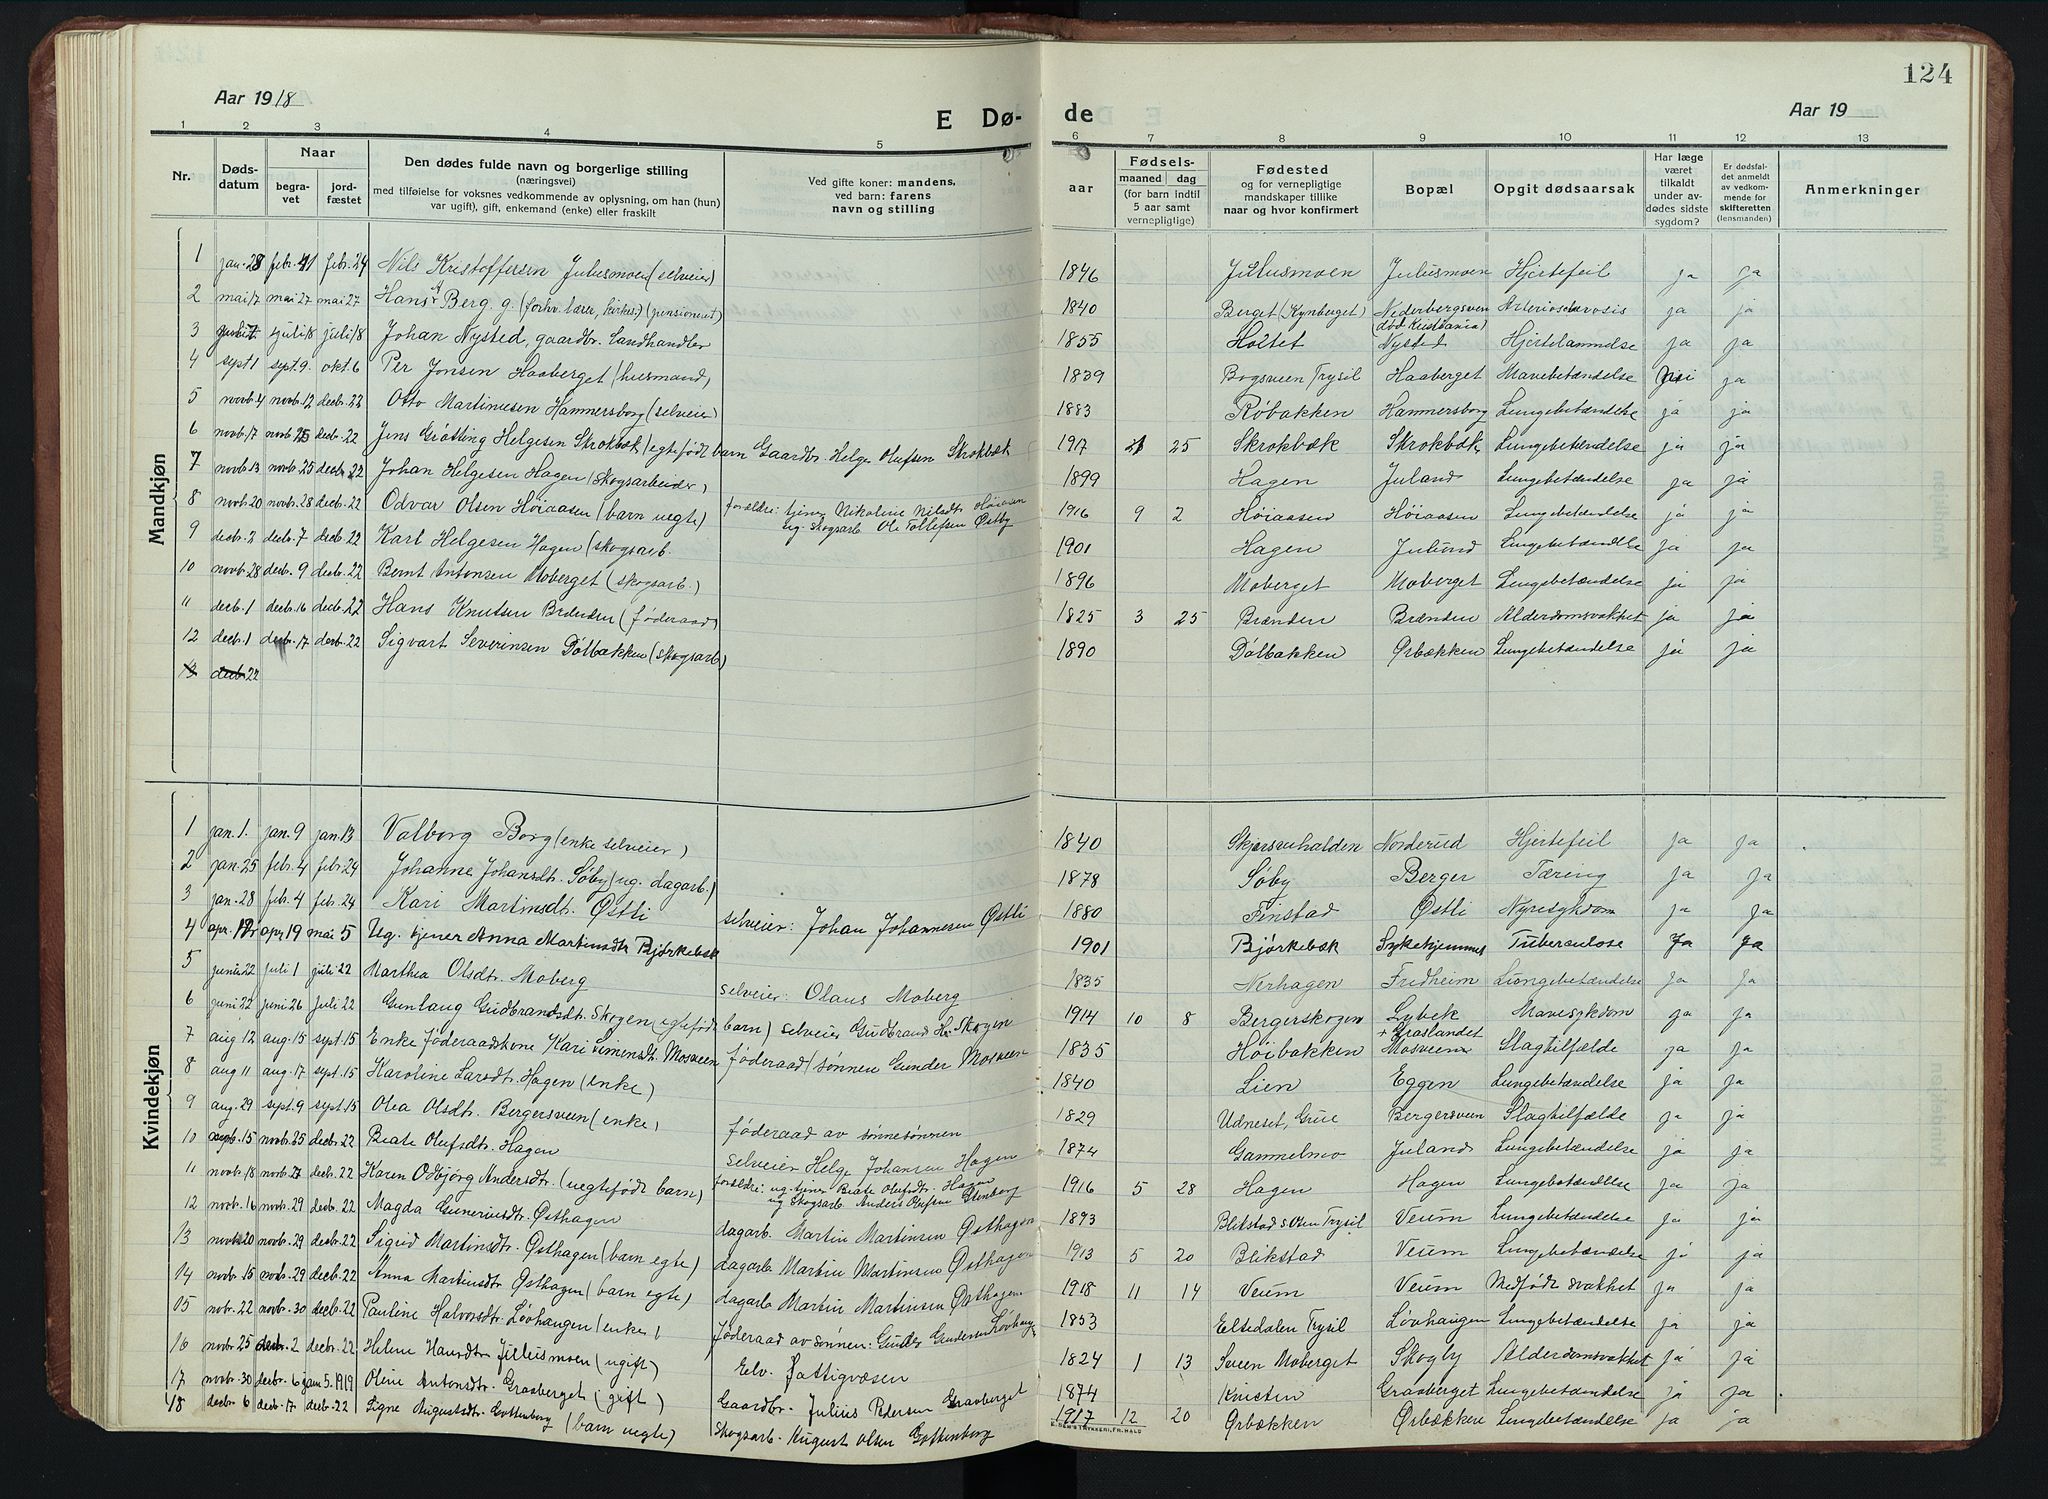 124
Aar 1918
Aar 19
E Dø- de
1 2 3 4 5 6 7 8 9 10 11 12 13
Nr. | Døds-datum | Naar begra-vet | jord-fæstet | Den dødes fulde navn og borgerlige stilling (næringsvei) med tilføielse for voksnes vedkommende av oplysning, om han (hun) var ugift), gift, enkemand (enke) eller fraskilt | Ved gifte koner: mandens, ved barn: farens navn og stilling | aar | Fødsels- maaned dag (for barn indtil 5 aar samt vernepligtige) | Fødested og for vernepligtige mandskaper tillike naar og hvor konfirmert | Bopæl | Opgit dødsaarsak | Har læge været tilkaldt under av-dødes sidste sygdom? | Er dødsfal-det anmeldt av vedkom-mende for skifteretten (lensmanden) | Anmerkninger
Mandkjøn
1 jan. 28 febr. 24 Nils Kristoffersen Julusmoen (selveier) 1846 Julusmoen Julusmoen Hjertefeil ja ja
2 mai 17 mai 27 mai 27 Hans A Berg. g. (forhv. lærer, kirkes.) (pensioneret) 1840 Berget (Kynberget) Nederbergsveen (død Kristiania) Arteriosclerosis ja ja
3 juli 18 juli 18 Johan Nysted, gaardbr. Landhandler 1855 Holtet Nysted Hjertelammelse ja ja
4 sept 1 sept. 9. okt. 6 Per Jonsen Haaberget (husmand) 1839 Bogsveen Trysil Haaberget Mavebetændelse ja
5 novb. 4 novb. 12 decb. 22 Otto Martinusen Hammersborg (selveier) 1883 Røbakken Hammersborg Lungebetændelse ja ja
6 novb. 17 novb. 25 decb. 22 Jens Grøtting Helgesen Skrokbæk (egtefødt barn Gaardbr. Helge Olufsen Skrokbæk 1917 25 Skrokbæk Skrokbæk Lungebetændelse ja ja
7 novb. 13 novb. 25 decb. 22 Johan Helgesen Hagen (skogsarbeider) 1899 Hagen Juland Lungebetændelse ja ja
8 novb. 20 novb. 28 decb. 22 Odvar Olsen Høiaasen (barn uegte) forældre: tjener Nikoline Nilsdtr. Høiaasen ug. Skogsarb. Ole Tollefsen Østby 1916 9 2 Høiaasen Høiaasen Lungebetændelse ja ja
9 decb. 2 decb. 7 decb. 22 Karl Helgesen Hagen (skogsarb. 1901 Hagen Julund Lungebetændlse ja ja
10 novb. 28 decb. 9 decb. 22 Bernt Antonsen Moberget (skogsarb.) 1896 Moberget Moberget Lungebetændelse ja ja
11 decb. 1 decb. 16 decb. 22 Hans Knutsen Brænden (føderaad) 1825 3 25 Brænden Brænden Alderdomsvakhet ja ja
12 decb. 1 decb. 17 decb. 22 Sigvart Severinsen Dølbakken (skogsarb) 1890 Dølbakken Ørbækken Lungebetændelse ja ja
13 decb. 22
Kvindekjøn
1 jan. 1. jan. 9 jan. 13 Valborg Borg (enke selveier) 1840 Norderud Hjertefeil ja ja
2 jan. 25 febr. 4 febr. 24 Johanne Johansdt. Søby (ug. dagarb.) 1878 Søby Berger Tæring ja ja
3 jan. 28 feb. 4 feb. 24 Kari Martinsdt. Østli selveier: Johan Johannesen Østli 1880 Finstad Østli Nyresykdom ja ja
4 apr. 19 mai 5 Ug. tjener Anna Martinsdtr Bjørkebæk 1901 Bjørkebæk Sykehjemmet Tuberculose Ja ja
5 juni 22 juli 1 juli 22 Marthea Olsdtr. Moberg selveier: Olaus Moberg 1835 Nerhagen Fredheim Lungebetændelse ja ja
6 juni 22 juni 26 juli 22 Gunlaug Gudbrandsdt. Skogen (egtefødt barn) selveier Gudbrand Skogen 1914 10 8 Bergerskogen Lybek + Graslandet Mavesykdom ja ja
7 aug 12 aug. 15 sept. 15 Enke føderaadskone Kari Simensdt. Mosveen føderaad / sønnen Gunder Mosveen 1835 Høibakken Mosveen Slagtilfælde ja ja
8 aug 11 aug. 17 sept. 15 Karoline Larsdtr. Hagen (enke) 1840 Lien Eggen Lungebetændelse ja ja
9 aug. 29 sept. 9 sept. 15 Olea Olsdtr. Bergersveen (enke) føderaad av sønnesønnen 1829 Udneset, Grue Bergersveen Slagtilfælde ja ja
10 15 novb. 25 decb. 22 Beate Olufsdtr. Hagen selveier Helge Johansen Hagen 1874 Gammelmo Juland Lungebetændelse ja ja
11 novb. 18 novb. 27 decb. 22 Karen Odbjørg Andersdtr. (uegtefødt barn) forældre: ug. tjener Beate Olufsdtr. Hagen ug Skogsarb. Anders Olufsen 1916 5 28 Hagen Hagen Lungebetændlse ja ja
12 novb. 16 novb. 29 decb. 22 Magda Gunerusdtr. Østhagen dagarb. Martin Martinsen Østhagen 1893 Blikstad Trysil Veum Lungebetændelse ja ja
13 novb. 20 novb. 29 decb. 22 Sigrid Martinsdtr. Østhagen (barn egte) dagarb Martin Martinsen Østhagen 1913 5 20 Blikstad Veum Lungebetændelse ja ja
14 novb. 15 novb. 29 decb. 22 Anna Martinsdtr Østhagen (barn egte) dagarb Martin Martinsen Østhagen 1918 11 14 Veum Veum Medfødt svakhet ja ja
15 nov. 22 novb. 30 decb. 22 Pauline Halvorsdtr. Løvhaugen (enke) føderaad av sønnen: Gunder Gundersen Løvhaug 1853 Eltsedalen Trysil Løvhaugen Lungebetændelse ja ja
16 novb. 25 decb. 2 decbr. 22 Helene Hansdtr Julusmoen (ugift) Elv. Fattigvæsen 1824 1 13 Sveen Moberget Skogby Alderdomsvakhet ja ja
17 novb. 30 decbr. 6 jan. 5. 1919 Oline Antonsdtr. Graaberget (gift) Gaardbr. Julius Pedersen Graaberget 1874 Graaberget Lungebetændelse ja ja
18 decbr. 6 decb. 17 decb. 22 Signe Augustsdtr. Gottenborg (barn uegte) Skogsarb. August Olsen Gottenborg 1917 12 20 Ørbækken Ørbækken Lungebetændelse ja ja
E. SEM'S TRYKKERI, FR. HALD